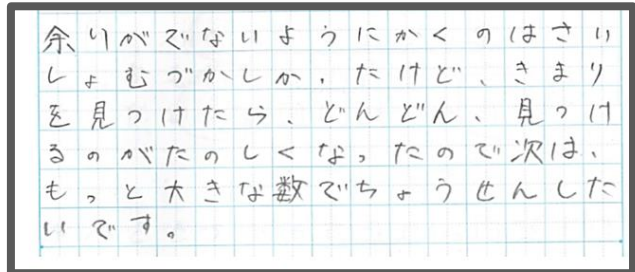 余りがでないようにかくのはさい
しょむづかしか，たけど、きまり
を見つけたら、どんどん、見つけ
るのがたのしくなったので次は、
もっと大きな数でちょうせんした
いです。